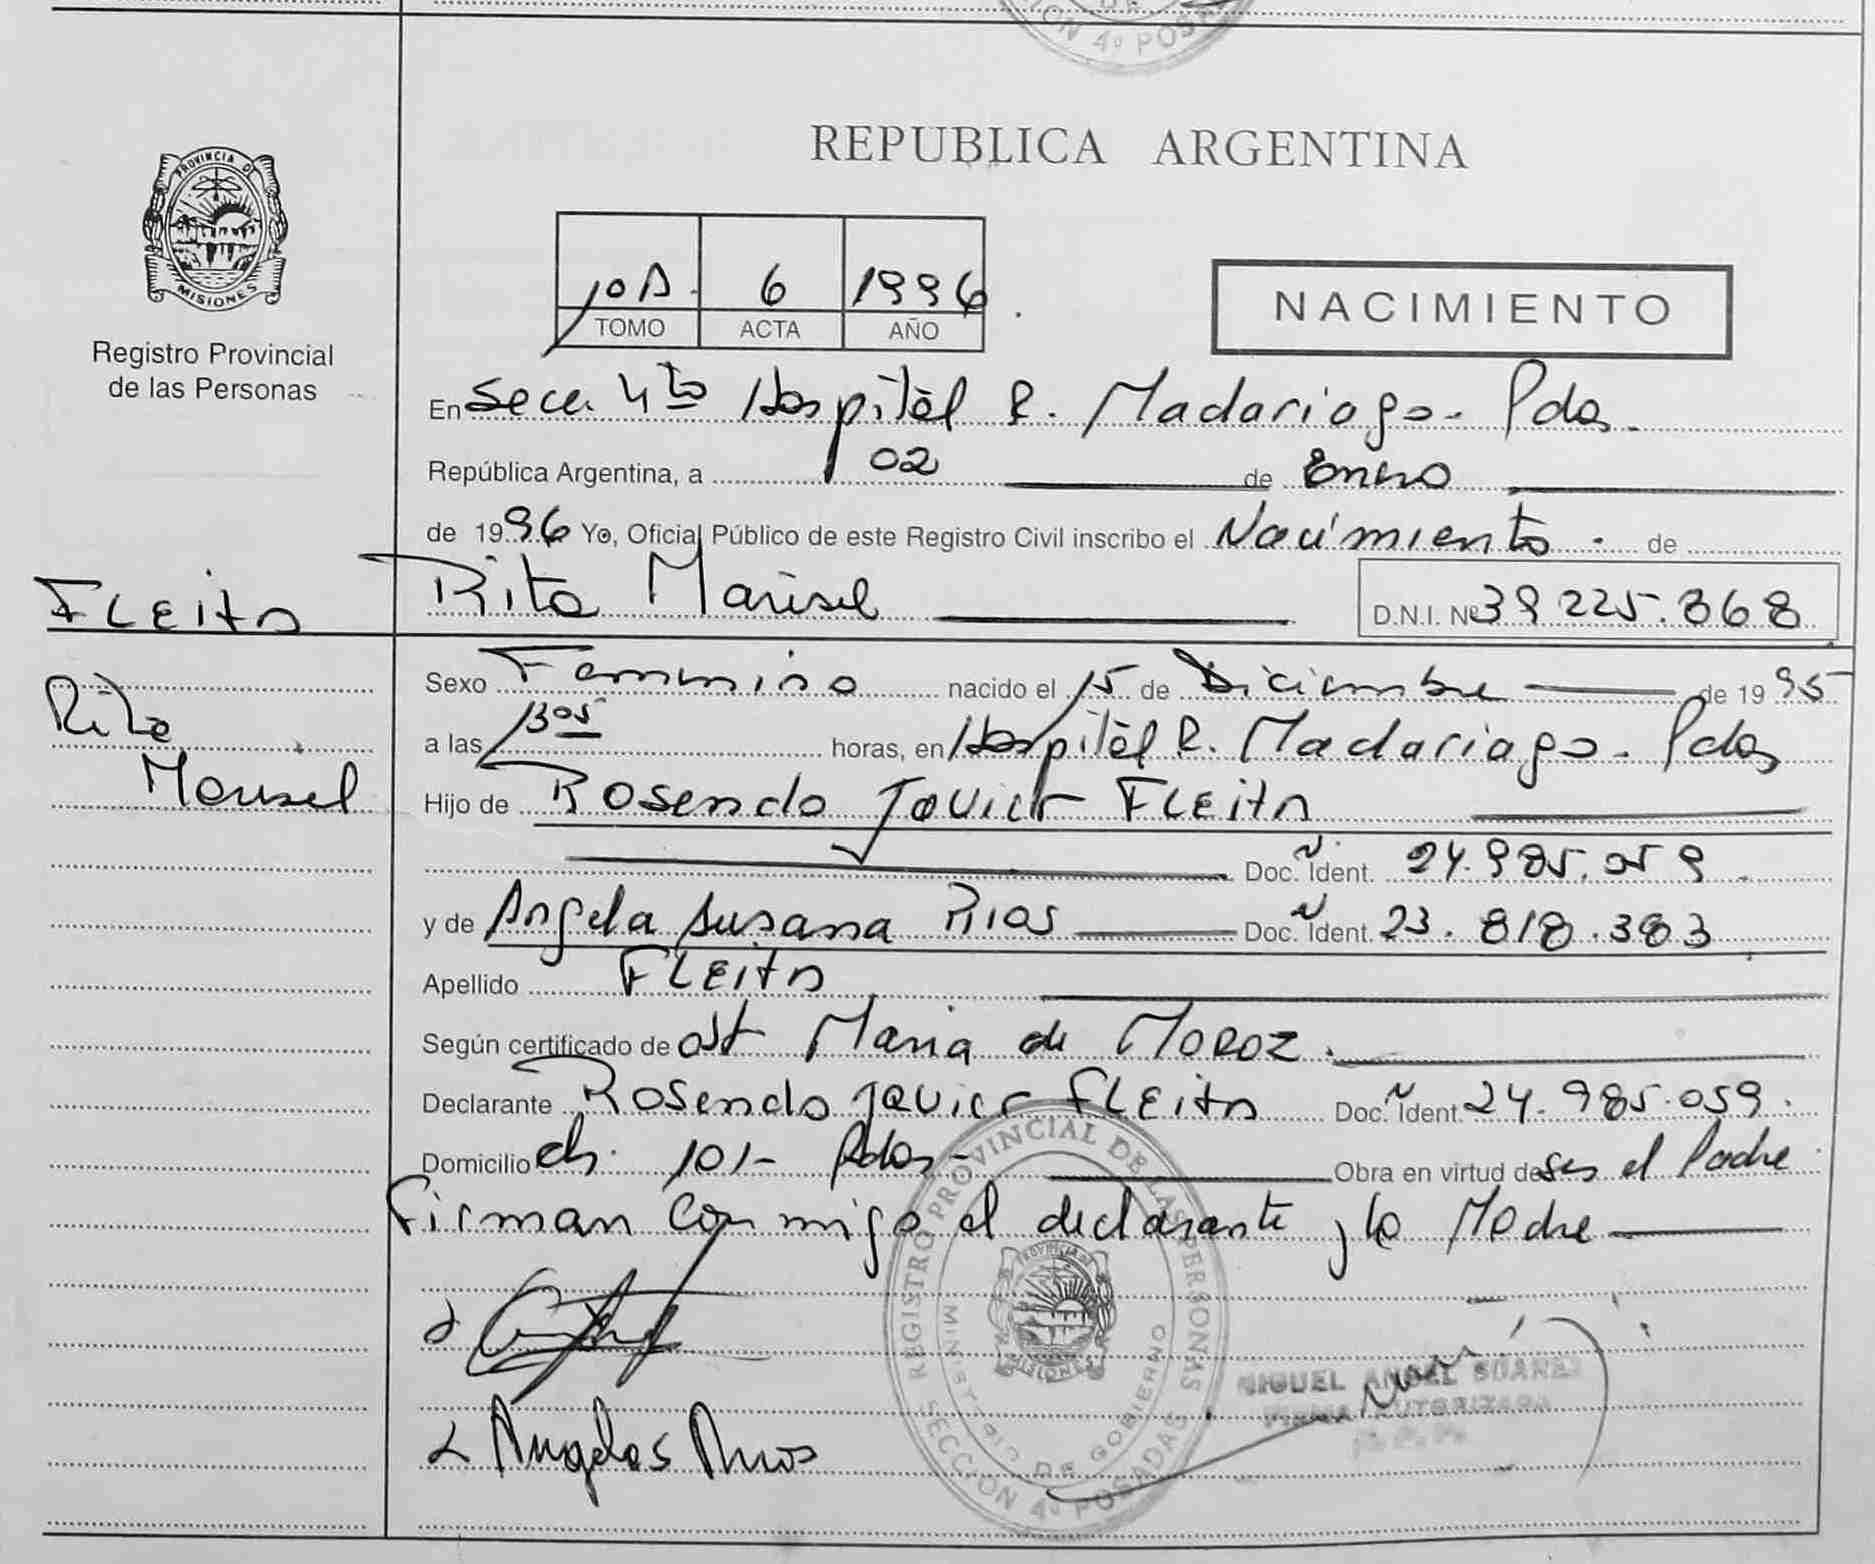 CION 4º POSA
REPUBLICA ARGENTINA
PROVINCIA DE
MISIONES
Registro Provincial
de las Personas
10A 6 1996
TOMO ACTA AÑO
NACIMIENTO
En Secc. 4ta Hospital R. Madariaga - Pdas.
República Argentina, a 02 de Enero
de 1996 Yo, Oficial Público de este Registro Civil inscribo el Nacimiento. de
FLEITA Rita Marisel D.N.I. Nº 39 225.868
Rita
Marisel
Sexo Femenino nacido el 15 de Diciembre de 1995
a las 1305 horas, en Hospital R. Madariaga - Pdas
Hijo de Rosendo Javier FLEITA
Doc. Ident. 24.985.059
y de Angela Susana Rios Doc. Ident. 23.818.383
Apellido FLEITA
Según certificado de Obst Maria de MOROZ.
Declarante Rosendo Javier FLEITA Doc. Ident. 24.985.059.
Domicilio ch. 101 - Pdas - Obra en virtud de ser el Padre
Firman conmigo el declarante y la Madre
REGISTRO PROVINCIAL DE LAS PERSONAS
MINISTERIO DE GOBIERNO
PROVINCIA DE
MISIONES
SECCION 4º POSADAS
MIGUEL ANGEL SUAREZ
FIRMA AUTORIZADA
R. P. P.
Angelas Rios